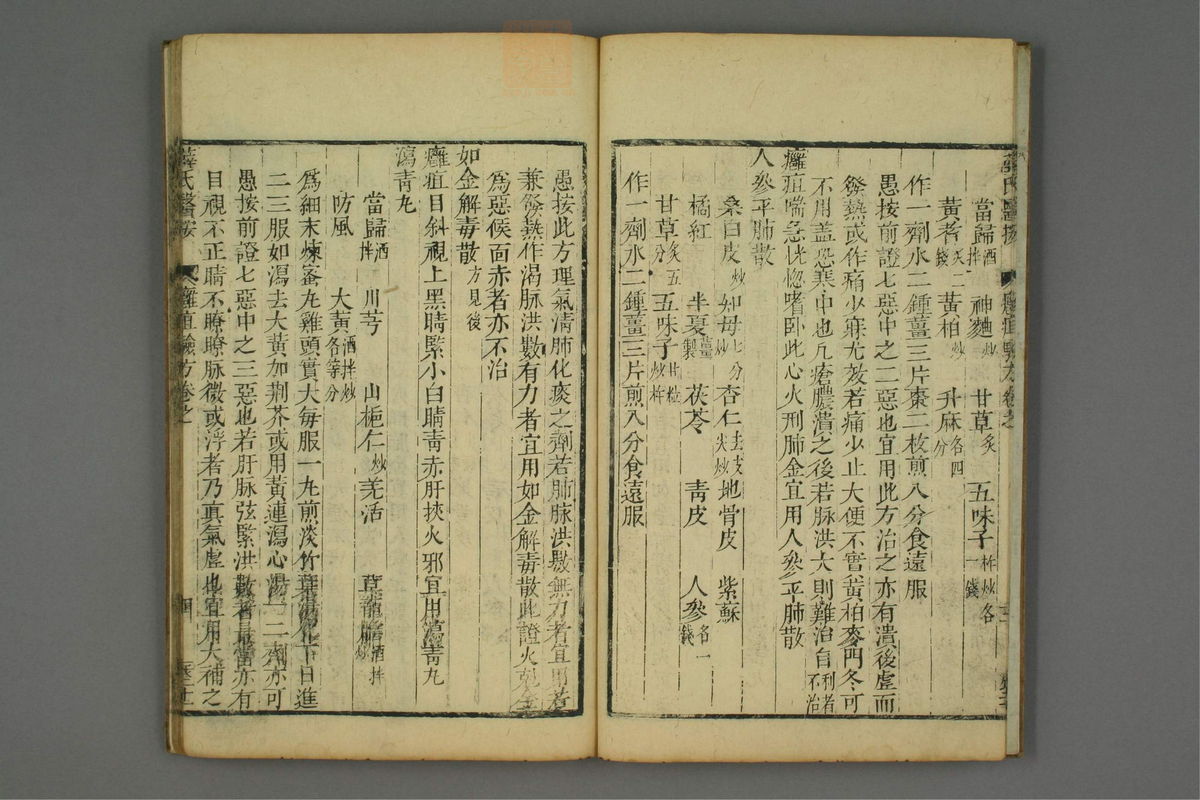 薛氏醫按 癰疽驗方卷之
當歸酒拌 神麯炒 甘草炙 五味子杵炒各一錢
黃耆炙二錢 黃柏炒 升麻各四分
作一劑水二鍾薑三片棗二枚煎八分食遠服
愚按前證七惡中之二惡也宜用此方治之亦有潰後虛而
發熱或作痛少寐尤效若痛少止大便不實黃柏麥門冬可
不用盖恐寒中也凡瘡膿潰之後若脉洪大則難治自利者不治
癰疽喘急恍惚嗜卧此心火刑肺金宜用人參平肺散
人參平肺散
桑白皮炒 知母七分炒 杏仁去皮尖炒 地骨皮 紫蘇
橘紅 半夏薑製 茯苓 靑皮 人參各一錢
甘草炙五分 五味子廿粒炒杵
作一劑水二鍾薑三片煎八分食遠服
愚按此方理氣清肺化痰之劑若肺脉洪數無力者宜用
兼發熱作渴脉洪數有力者宜用如金解毒散此證火
為惡候面赤者亦不治
如金解毒散方見後
癰疽目斜視上黑睛緊小白睛靑赤肝挾火邪宜用瀉靑丸
瀉靑丸
當歸酒拌 川芎 山梔仁炒 羌活 草龍膽酒拌炒
防風 大黃酒拌炒各等分
為細末煉蜜丸雞頭實大每服一丸煎淡竹葉湯化下日進
二三服如瀉去大黃加荆芥或用黃連瀉心湯一二劑亦可
愚按前證七惡中之三惡也若肝脉弦緊洪數者最當亦有
目視不正睛不瞭瞭脉微或浮者乃真氣虛也宜用大補之
薛氏醫按 癰疽驗方卷之